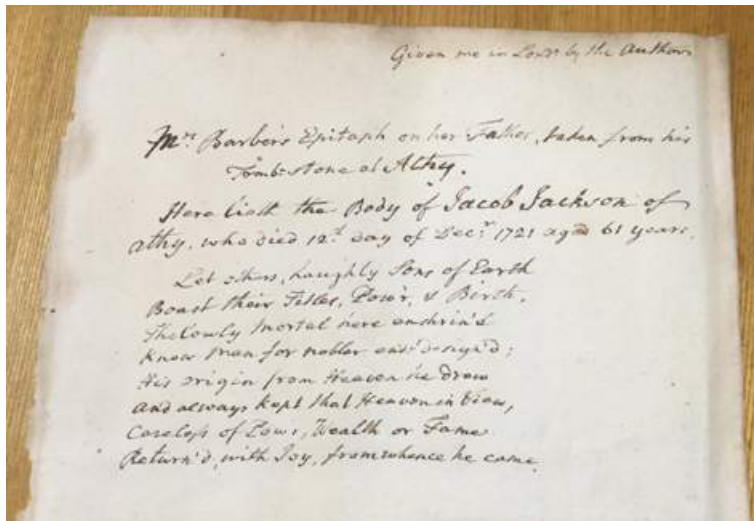 Given me in Lond: by the Author
Mrs. Barber's Epitaph on her Father, taken from his
Tomb-stone at Athy.
Here lieth the Body of Jacob Jackson of
Athy, who died 12th day of Decr 1721 aged 61 years.
Let others, haughty Sons of Earth
Boast their Titles, Pow'r, & Birth,
The lowly mortal here enshrin'd
Knew Man for nobler ends design'd;
His origin from Heaven he drew
And always kept that Heaven in View,
Careless of Pow'r, Wealth or Fame
Return'd, with Joy, from whence he came.